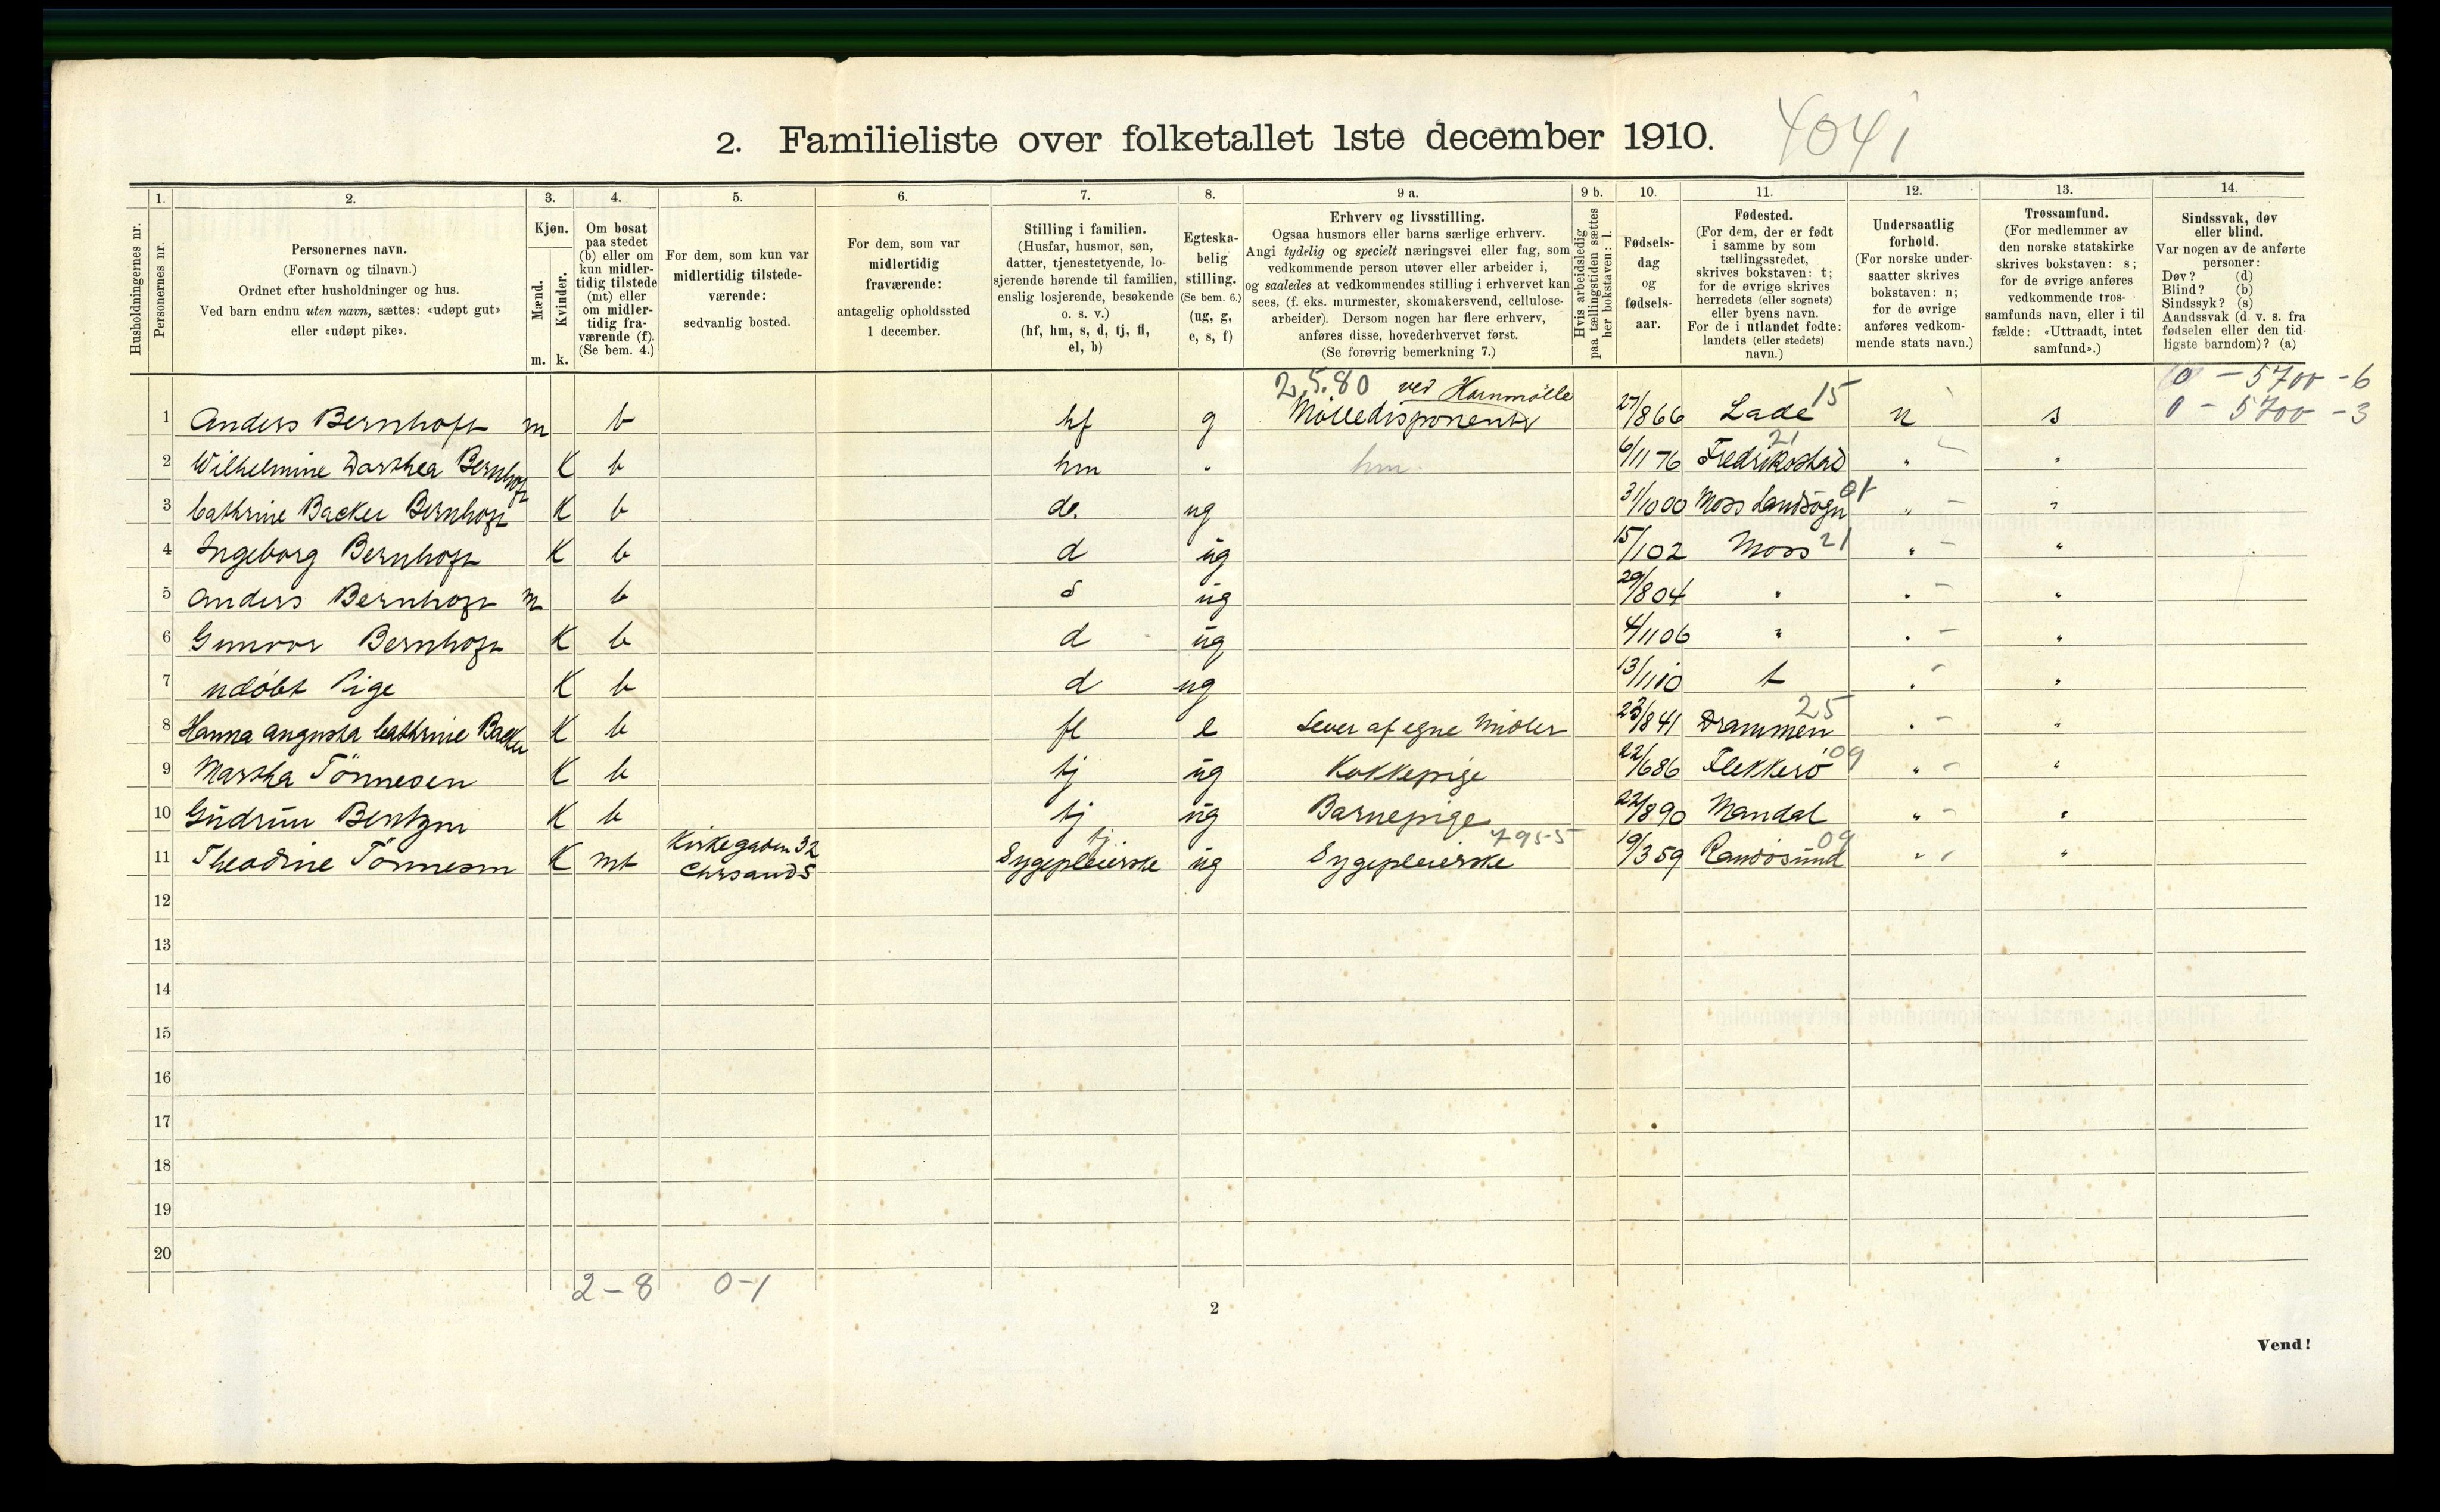 2. Familieliste over folketallet 1ste december 1910. 4041
1. 2. 3. 4. 5. 6. 7. 8. 9 a. 9 b. 10. 11. 12. 13. 14.
Husholdningernes nr.
Personernes nr.
Personernes navn.
(Fornavn og tilnavn.)
Ordnet efter husholdninger og hus.
Ved barn endnu uten navn, sættes: «udøpt gut»
eller «udøpt pike».
Kjøn.
Mænd.
Kvinder.
m. k.
Om bosat
paa stedet
(b) eller om
kun midler-
tidig tilstede
(mt) eller
om midler-
tidig fra-
værende (f).
(Se bem. 4.)
For dem, som kun var
midlertidig tilstede-
værende:
sedvanlig bosted.
For dem, som var
midlertidig
fraværende:
antagelig opholdssted
1 december.
Stilling i familien.
(Husfar, husmor, søn,
datter, tjenestetyende, lo-
sjerende hørende til familien,
enslig losjerende, besøkende
o. s. v.)
(hf, hm, s, d, tj, fl,
el, b)
Egteska-
belig
stilling.
(Se bem. 6.)
(ug, g,
e, s, f)
Erhverv og livsstilling.
Ogsaa husmors eller barns særlige erhverv.
Angi tydelig og specielt næringsvei eller fag, som
vedkommende person utøver eller arbeider i,
og saaledes at vedkommendes stilling i erhvervet kan
sees, (f. eks. murmester, skomakersvend, cellulose-
arbeider). Dersom nogen har flere erhverv,
anføres disse, hovederhvervet først.
(Se forøvrig bemerkning 7.)
Hvis arbeidsledig
paa tællingstiden sættes
her bokstaven: l.
Fødsels-
dag
og
fødsels-
aar.
Fødested.
(For dem, der er født
i samme by som
tællingsstedet,
skrives bokstaven: t;
for de øvrige skrives
herredets (eller sognets)
eller byens navn.
For de i utlandet fødte:
landets (eller stedets)
navn.)
Undersaatlig
forhold.
(For norske under-
saatter skrives
bokstaven: n;
for de øvrige
anføres vedkom-
mende stats navn.)
Trossamfund.
(For medlemmer av
den norske statskirke
skrives bokstaven: s;
for de øvrige anføres
vedkommende tros-
samfunds navn, eller i til
fælde: «Uttraadt, intet
samfund».)
Sindssvak, døv
eller blind.
Var nogen av de anførte
personer:
Døv? (d)
Blind? (b)
Sindssyk? (s)
Aandssvak (d. v. s. fra
fødselen eller den tid-
ligste barndom)? (a)
2.5.80 ved Kornmølle 0 - 5700 - 6
1 Anders Bernhoft m b hf g Mølledisponent 27/8 66 Lade 15 n s 0 - 5700 - 3
2 Wilhelmine Dorthea Bernhoft K b hm " hm 6/11 76 Fredrikstad 21 " "
3 Cathrine Backer Bernhoft K b d. ug 31/10 00 Moss Landsogn 01 " "
4 Ingeborg Bernhoft K b d ug 15/1 02 Moss 21 " "
5 Anders Bernhoft m b s ug 29/8 04 " " "
6 Gunvor Bernhoft K b d ug 4/11 06 " " "
7 udøbt Pige K b d ug 13/11 10 t " "
8 Hanna Augusta Cathrine Backer K b fl e Lever af egne Midler 23/8 41 Drammen 25 " "
9 Martha Tønnesen K b tj ug Kokkepige 22/6 86 Flekkerø 09 " "
10 Gudrun Bentzen K b tj ug Barnepige 22/8 90 Mandal " "
11 Theodrine Tønnesen K mt Kirkegaden 32 Chrsands tj Sygepleierske ug Sygepleierske 7955 19/3 59 Randøsund 09 " "
12
13
14
15
16
17
18
19
20
2-8 0-1
2
Vend!